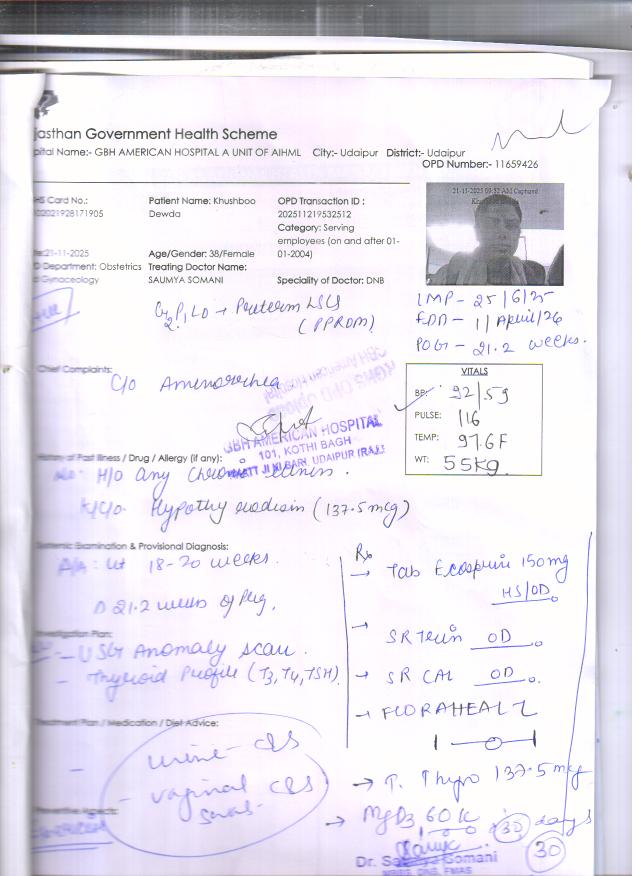 jasthan Government Health Scheme
pital Name:- GBH AMERICAN HOSPITAL A UNIT OF AIHML City:- Udaipur District:- Udaipur
OPD Number:- 11659426
21-11-2025 09:52 AM Captured
HS Card No.: Patient Name: Khushboo OPD Transaction ID :
02021928171905 Dewda 202511219532512
Category: Serving
employees (on and after 01-
:21-11-2025 Age/Gender: 38/Female 01-2004)
Department: Obstetrics Treating Doctor Name:
Gynaecology SAUMYA SOMANI Speciality of Doctor: DNB
G2P1L0 → Preterm LSCS
(PPROM)
LMP - 25/6/25
EDD - 1/April/26
POG - 21.2 weeks.
Chief Complaints:
C/o Amenorrhea
VITALS
BP: 92/59
PULSE: 116
TEMP: 97.6F
WT: 55kg
GBH AMERICAN HOSPITAL
101, KOTHI BAGH
BHATT JI KI BARI, UDAIPUR (RAJ.)
History of Past Illness / Drug / Allergy (if any):
No H/O Any Chronic illness.
K/C/O Hypothyroidism (137.5mcg)
Systemic Examination & Provisional Diagnosis:
P/A: Ut 18-20 weeks.
D 21.2 weeks of Preg.
Investigation Plan:
- USG Anomaly scan.
- Thyroid Profile (T3, T4, TSH)
Treatment Plan / Medication / Diet Advice:
urine - C/S
- vaginal C/S
swab-
Preventive Aspects:
Rx
→ Tab Ecosprin 150mg
HS/OD.
→ SR Tein OD.
→ SR CAL OD.
→ FLORAHEAL Z
→ T. Thyro 137.5 mcg
→ MyD3 60K
30 days
30
Dr. Saumya Somani
MBBS, DNB, FMAS